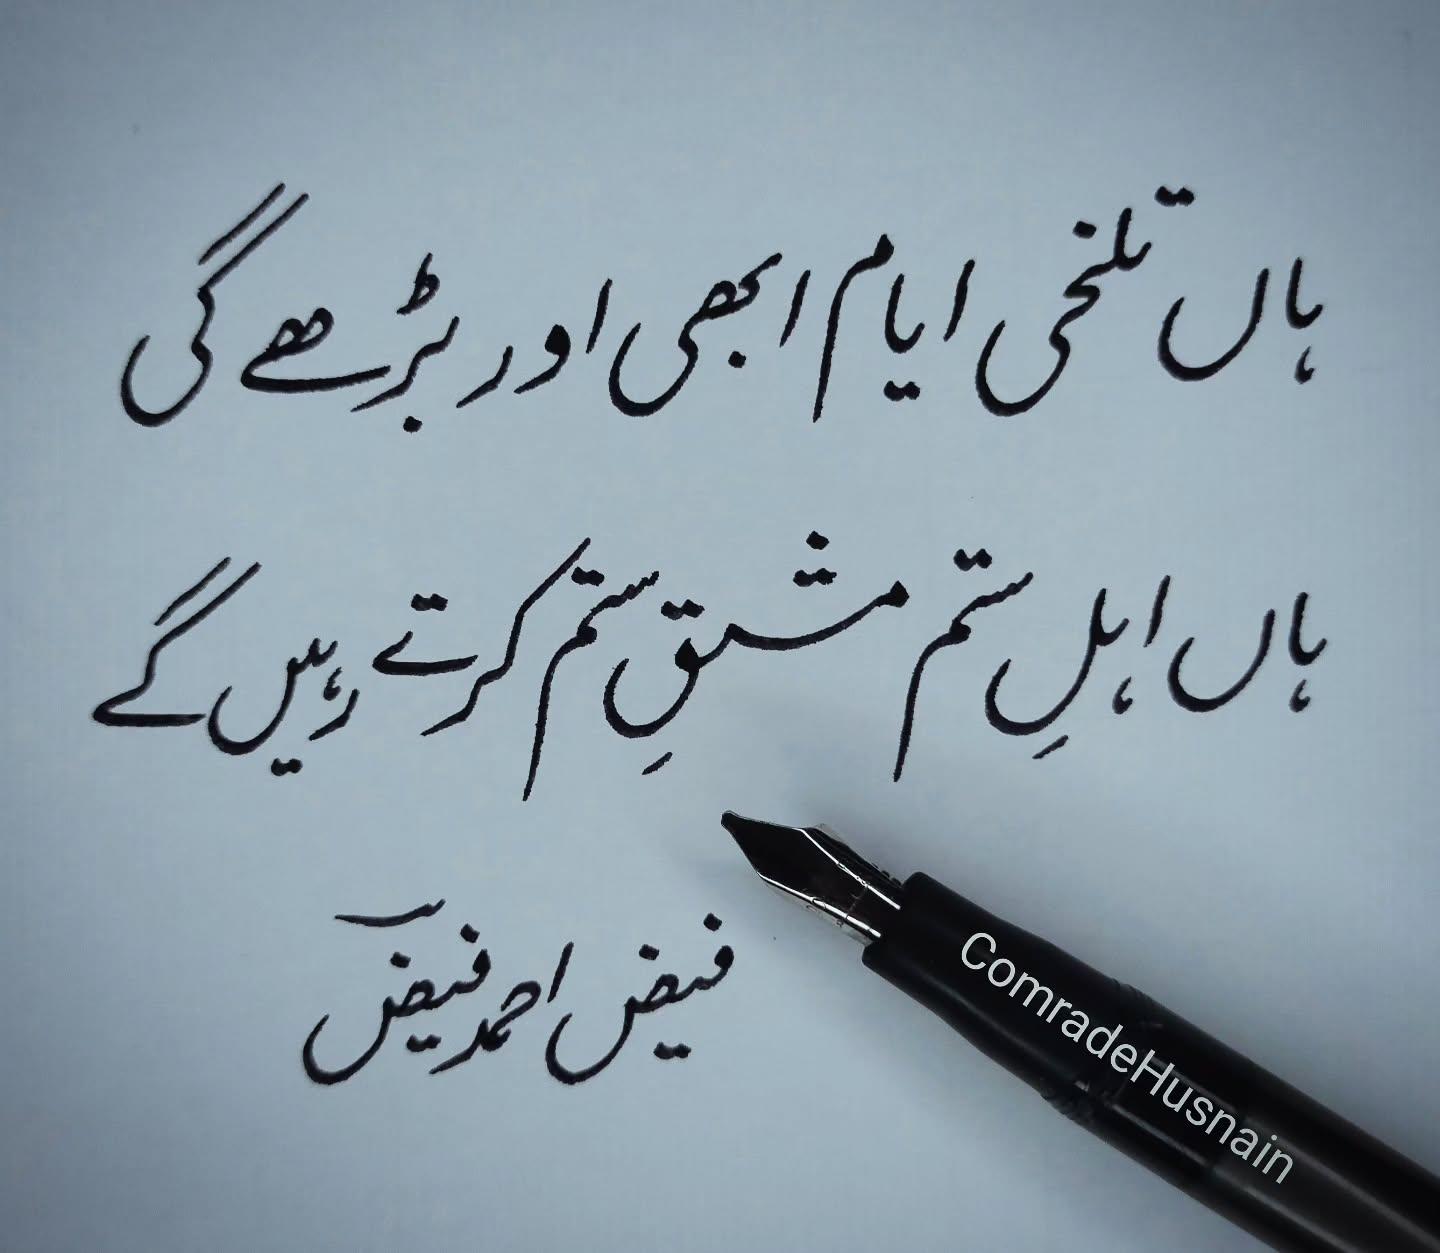 ہاں تلخی ایام ابھی اور بڑھے گی
ہاں اہلِ ستم مشقِ ستم کرتے رہیں گے
فیض احمد فیضؔ
ComradeHusnain